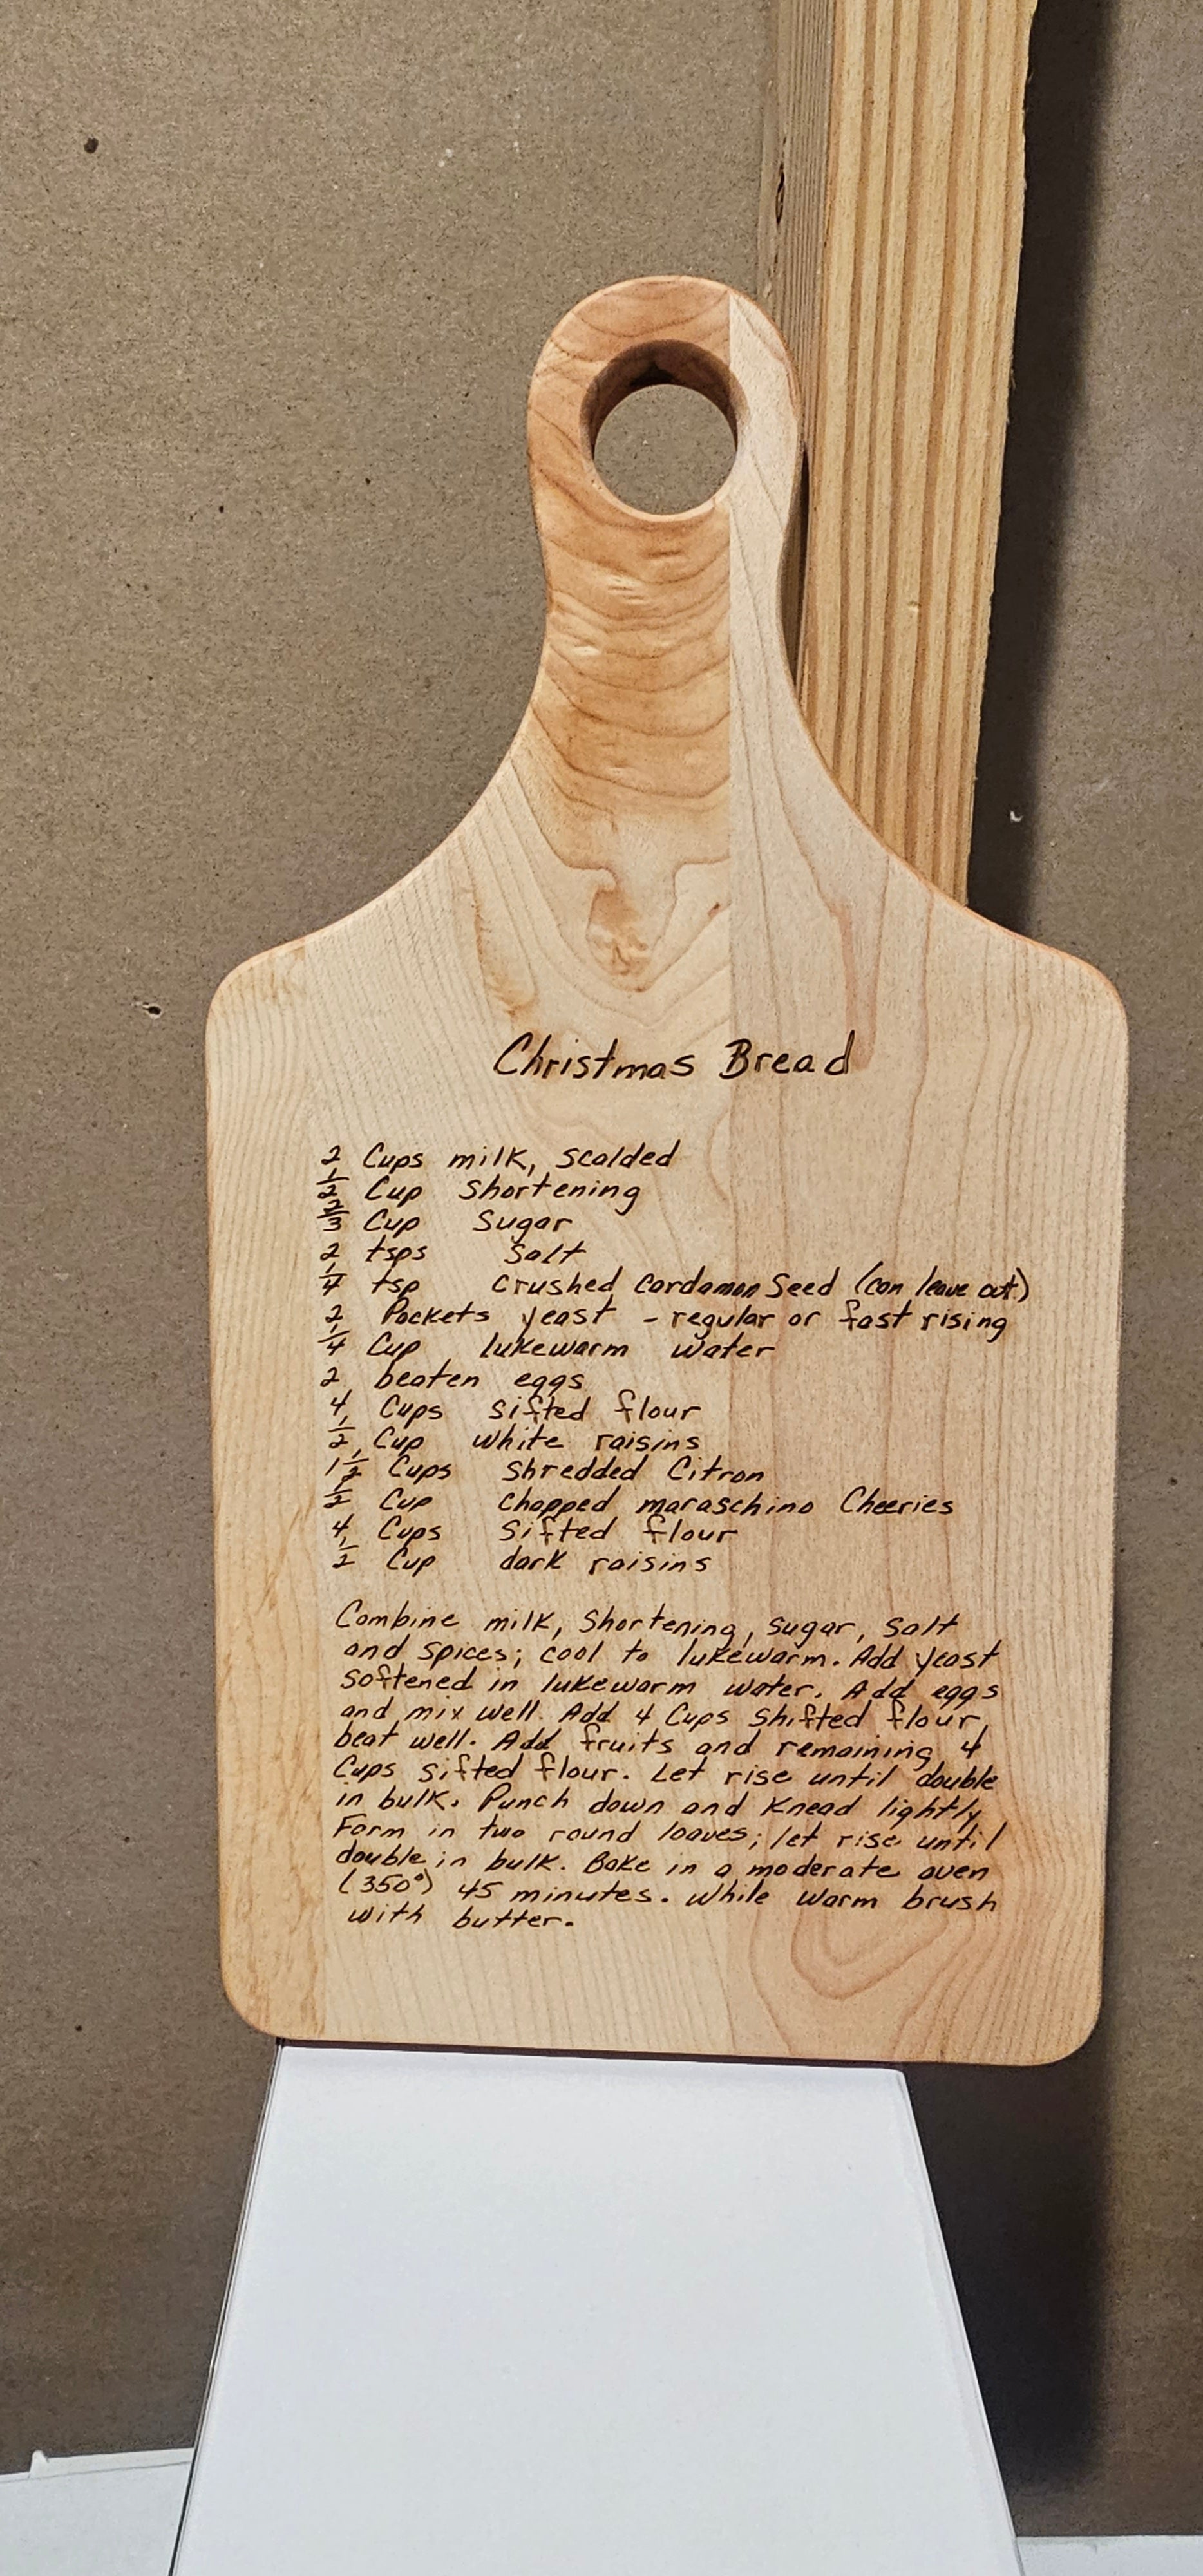 Christmas Bread
2 Cups milk, scalded
1/2 Cup Shortening
2/3 Cup Sugar
2 tsps Salt
1/4 tsp crushed Cardamon Seed (can leave out)
2 Packets yeast - regular or fast rising
1/4 Cup lukewarm water
2 beaten eggs
4 Cups sifted flour
1/2 Cup white raisins
1 1/2 Cups shredded Citron
1/2 Cup chopped maraschino Cheeries
4 Cups sifted flour
1/2 Cup dark raisins
Combine milk, Shortening, sugar, salt
and spices; cool to lukewarm. Add yeast
softened in lukewarm water. Add eggs
and mix well. Add 4 Cups Shifted flour,
beat well. Add fruits and remaining 4
Cups sifted flour. Let rise until double
in bulk. Punch down and Knead lightly
Form in two round loaves; let rise until
double in bulk. Bake in a moderate oven
(350°) 45 minutes. While warm brush
with butter.